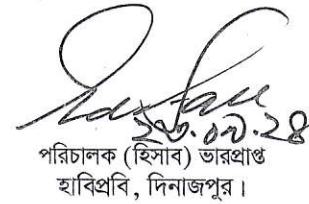 ২৩.০৯.২৪
পরিচালক (হিসাব) ভারপ্রাপ্ত
হাবিপ্রবি, দিনাজপুর।